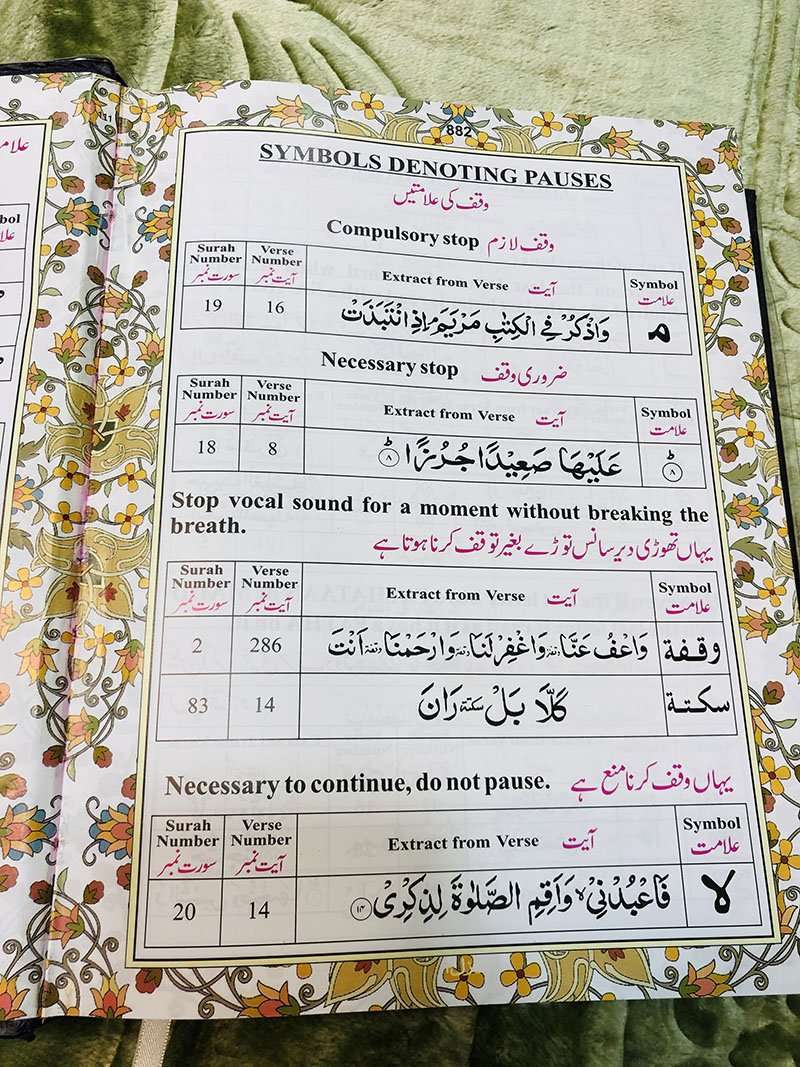 882
SYMBOLS DENOTING PAUSES
وقف کی علامتیں
Compulsory stop وقف لازم
Surah Number سورت نمبر Verse Number آیت نمبر Extract from Verse آیت Symbol علامت
19 16 وَاذْكُرْ فِي الْكِتٰبِ مَرْيَمَ ۘ اِذِ انْتَبَذَتْ مـ
Necessary stop ضروری وقف
Surah Number سورت نمبر Verse Number آیت نمبر Extract from Verse آیت Symbol علامت
18 8 عَلَيْهَا صَعِيْدًا جُرُزًا ؕ ۸ ط ۸
Stop vocal sound for a moment without breaking the
breath.
یہاں تھوڑی دیر سانس توڑے بغیر توقف کرنا ہوتا ہے
Surah Number سورت نمبر Verse Number آیت نمبر Extract from Verse آیت Symbol علامت
2 286 وَاعْفُ عَنَّا وقفة وَاغْفِرْ لَنَا وقفة وَارْحَمْنَا وقفة اَنْتَ وقفة
83 14 كَلَّا بَلْ سكتة رَانَ سكتة
Necessary to continue, do not pause. یہاں وقف کرنا منع ہے
Surah Number سورت نمبر Verse Number آیت نمبر Extract from Verse آیت Symbol علامت
20 14 فَاعْبُدْنِيْ ۙ وَاَقِمِ الصَّلٰوةَ لِذِكْرِيْ ۱۴ لا